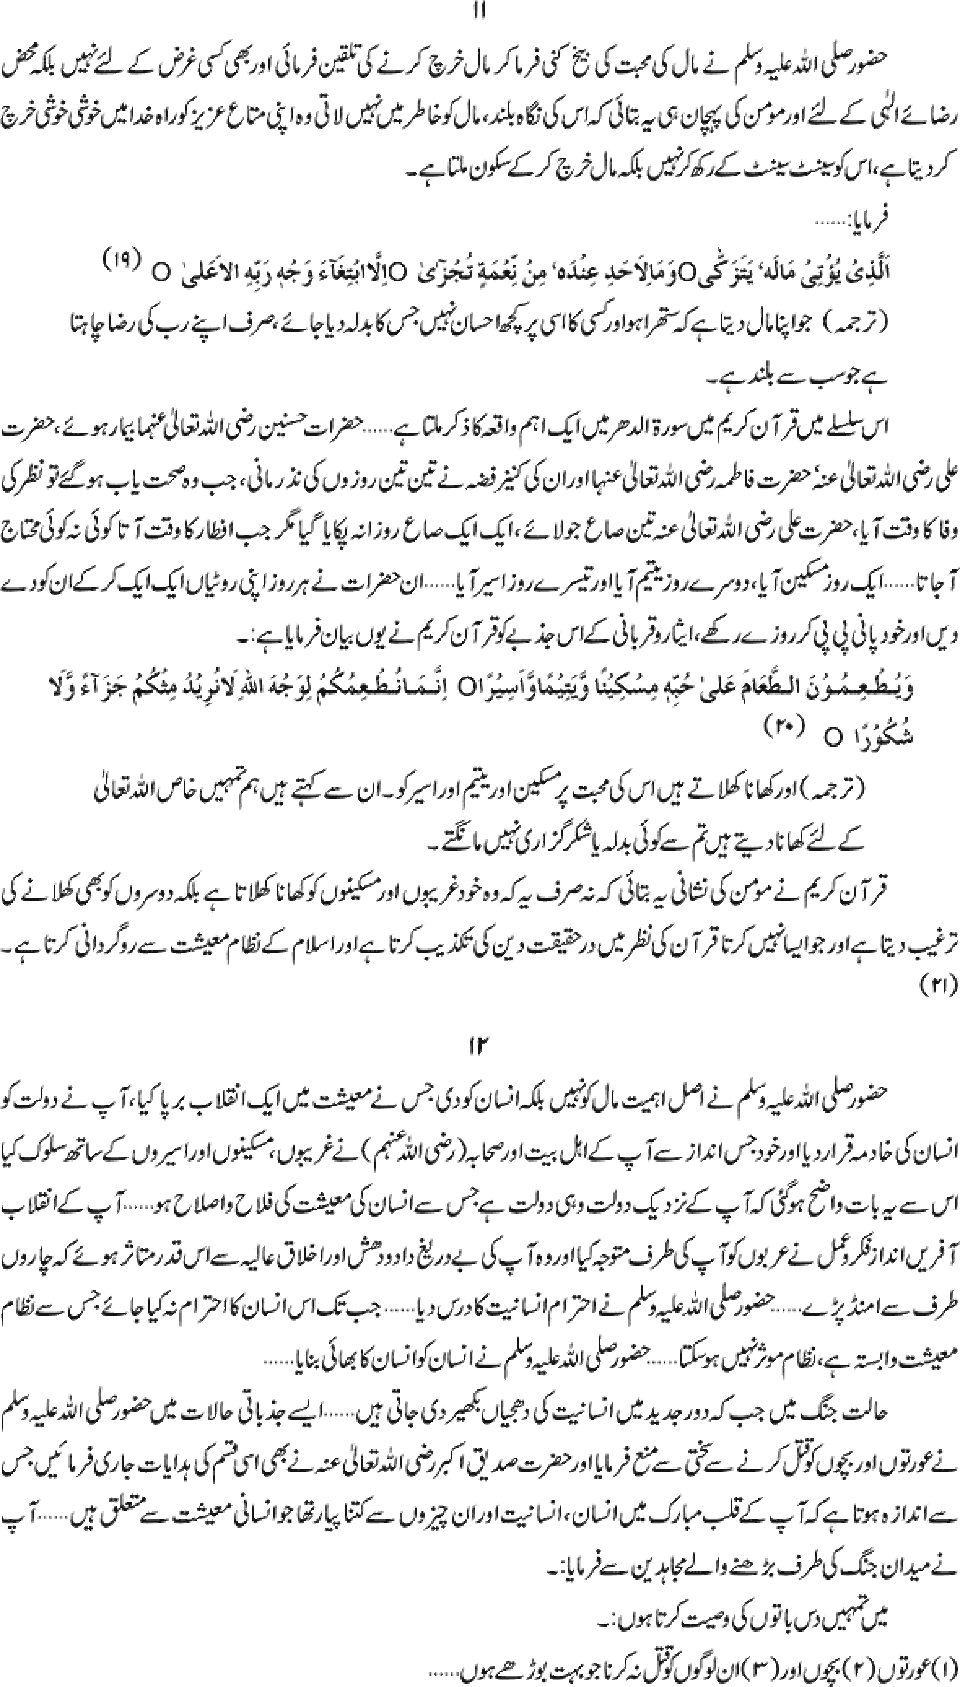 ۱۱
حضور صلی اللہ علیہ وسلم نے مال کی محبت کی بیخ کنی فرما کر مال خرچ کرنے کی تلقین فرمائی اور بھی کسی غرض کے لئے نہیں بلکہ محض
رضائے الٰہی کے لئے اور مومن کی پہچان ہی یہ بتائی کہ اس کی نگاہ بلند، مال کو خاطر میں نہیں لاتی وہ اپنی متاع عزیز کو راہ خدا میں خوشی خوشی خرچ
کر دیتا ہے، اس کو سینٹ سینٹ کے رکھ کر نہیں بلکہ مال خرچ کر کے سکون ملتا ہے۔
فرمایا:......
اَلَّذِیْ یُؤْتِیْ مَالَہٗ یَتَزَکّٰی○ وَمَا لِاَحَدٍ عِنْدَہٗ مِنْ نِّعْمَۃٍ تُجْزٰیٓ ○ اِلَّا ابْتِغَآءَ وَجْہِ رَبِّہِ الْاَعْلٰی ○ (۱۹)
(ترجمہ) جو اپنا مال دیتا ہے کہ ستھرا ہو اور کسی کا اسی پر کچھ احسان نہیں جس کا بدلہ دیا جائے، صرف اپنے رب کی رضا چاہتا
ہے جو سب سے بلند ہے۔
اس سلسلے میں قرآن کریم میں سورۃ الدھر میں ایک اہم واقعہ کا ذکر ملتا ہے...... حضرات حسنین رضی اللہ تعالیٰ عنہما بیمار ہوئے، حضرت
علی رضی اللہ تعالیٰ عنہ‘ حضرت فاطمہ رضی اللہ تعالیٰ عنہا اور ان کی کنیز فضہ نے تین تین روزوں کی نذر مانی، جب وہ صحت یاب ہو گئے تو نظر کی
وفا کا وقت آیا، حضرت علی رضی اللہ تعالیٰ عنہ تین صاع جو لائے، ایک ایک صاع روزانہ پکایا گیا مگر جب افطار کا وقت آتا کوئی نہ کوئی محتاج
آ جاتا...... ایک روز مسکین آیا، دوسرے روز یتیم آیا اور تیسرے روز اسیر آیا...... ان حضرات نے ہر روز اپنی روٹیاں ایک ایک کر کے ان کو دے
دیں اور خود پانی پی پی کر روزے رکھے، ایثار و قربانی کے اس جذبے کو قرآن کریم نے یوں بیان فرمایا ہے:۔
وَیُطْعِمُوْنَ الطَّعَامَ عَلٰی حُبِّہٖ مِسْکِیْنًا وَّیَتِیْمًا وَّاَسِیْرًا○ اِنَّمَا نُطْعِمُکُمْ لِوَجْہِ اللّٰہِ لَا نُرِیْدُ مِنْکُمْ جَزَآءً وَّلَا
شُکُوْرًا ○ (۲۰)
(ترجمہ) اور کھانا کھلاتے ہیں اس کی محبت پر مسکین اور یتیم اور اسیر کو۔ ان سے کہتے ہیں ہم تمہیں خاص اللہ تعالیٰ
کے لئے کھانا دیتے ہیں تم سے کوئی بدلہ یا شکر گزاری نہیں مانگتے۔
قرآن کریم نے مؤمن کی نشانی یہ بتائی کہ نہ صرف یہ کہ وہ خود غریبوں اور مسکینوں کو کھانا کھلاتا ہے بلکہ دوسروں کو بھی کھلانے کی
ترغیب دیتا ہے اور جو ایسا نہیں کرتا قرآن کی نظر میں در حقیقت دین کی تکذیب کرتا ہے اور اسلام کے نظام معیشت سے روگردانی کرتا ہے۔
(۲۱)
۱۲
حضور صلی اللہ علیہ وسلم نے اصل اہمیت مال کو نہیں بلکہ انسان کو دی جس نے معیشت میں ایک انقلاب برپا کیا، آپ نے دولت کو
انسان کی خادمہ قرار دیا اور خود جس انداز سے آپ کے اہل بیت اور صحابہ (رضی اللہ عنہم) نے غریبوں، مسکینوں اور اسیروں کے ساتھ سلوک کیا
اس سے یہ بات واضح ہو گئی کہ آپ کے نزدیک دولت وہی دولت ہے جس سے انسان کی معیشت کی فلاح و اصلاح ہو...... آپ کے انقلاب
آفریں انداز فکر و عمل نے عربوں کو آپ کی طرف متوجہ کیا اور وہ آپ کی بے دریغ داد و دھش اور اخلاق عالیہ سے اس قدر متاثر ہوئے کہ چاروں
طرف سے امنڈ پڑے...... حضور صلی اللہ علیہ وسلم نے احترام انسانیت کا درس دیا...... جب تک اس انسان کا احترام نہ کیا جائے جس سے نظام
معیشت وابستہ ہے، نظام موثر نہیں ہو سکتا...... حضور صلی اللہ علیہ وسلم نے انسان کو انسان کا بھائی بنایا......
حالت جنگ میں جب کہ دور جدید میں انسانیت کی دھجیاں بکھیر دی جاتی ہیں...... ایسے جذباتی حالات میں حضور صلی اللہ علیہ وسلم
نے عورتوں اور بچوں کو قتل کرنے سے سختی سے منع فرمایا اور حضرت صدیق اکبر رضی اللہ تعالیٰ عنہ نے بھی اسی قسم کی ہدایات جاری فرمائیں جس
سے اندازہ ہوتا ہے کہ آپ کے قلب مبارک میں انسان، انسانیت اور ان چیزوں سے کتنا پیار تھا جو انسانی معیشت سے متعلق ہیں...... آپ
نے میدان جنگ کی طرف بڑھنے والے مجاہدین سے فرمایا:۔
میں تمہیں دس باتوں کی وصیت کرتا ہوں:۔
(۱) عورتوں (۲) بچوں اور (۳) ان لوگوں کو قتل نہ کرنا جو بہت بوڑھے ہوں......